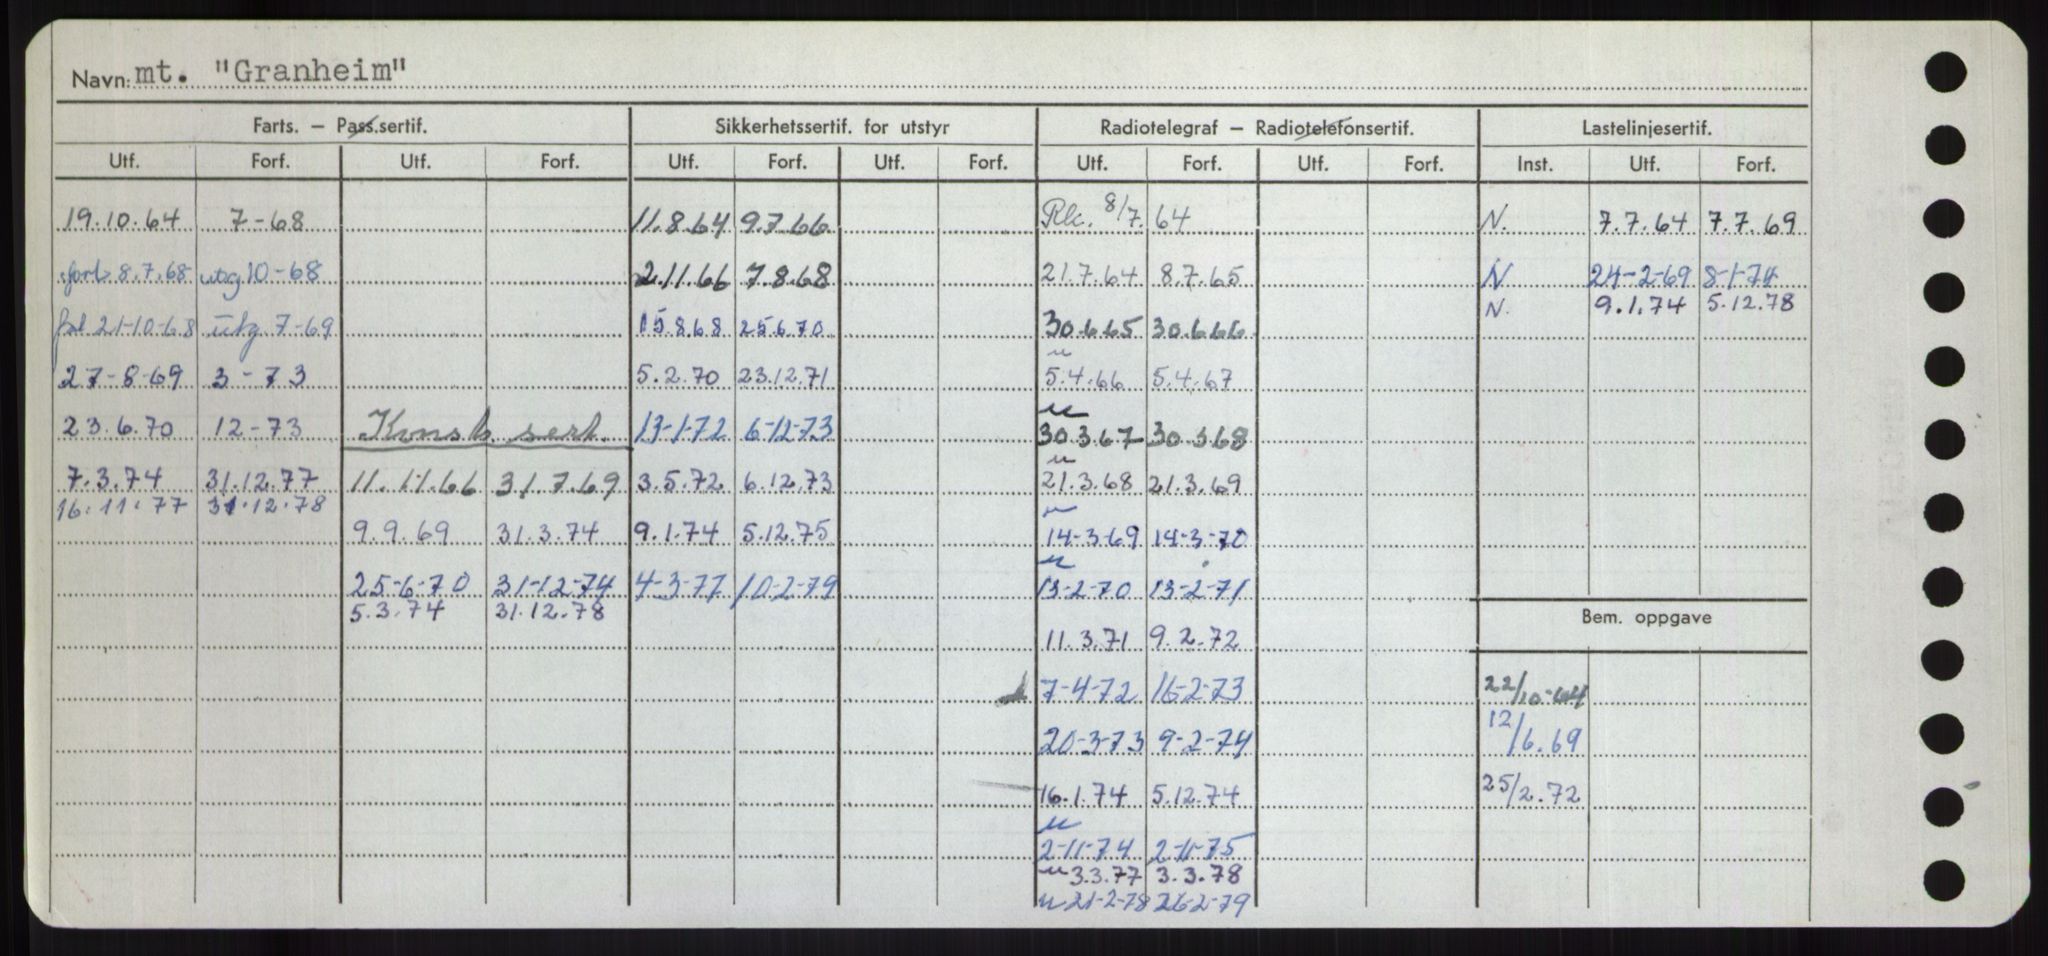 Navn: mt. "Granheim"
Farts. – Pass.sertif. Sikkerhetssertif. for utstyr Radiotelegraf – Radiotelefonsertif. Lastelinjesertif.
Utf. Forf. Utf. Forf. Utf. Forf. Utf. Forf. Utf. Forf. Utf. Forf. Inst. Utf. Forf.
19.10.64 7-68 11.8.64 9.7.66 Rk. 8/7.64 N. 7.7.64 7.7.69
forl. 8.7.68 utg 10-68 2.11.66 7.8.68 21.7.64 8.7.65 N 24-2-69 8-1-74
N. 9.1.74 5.12.78
21-10-68 utg 7-69 15.8.68 25.6.70 30.6.65 30.6.66
27-8-69 3-73 5.2.70 23.12.71 u 5.4.66 5.4.67
23.6.70 12-73 Konstr. sert. 13-1-72 6-12-73 u 30.3.67 30.3.68
7.3.74 31.12.77 11.11.66 31.7.69 3.5.72 6.12.73 u 21.3.68 21.3.69
16.11.77 31.12.78
9.9.69 31.3.74 9.1.74 5.12.75 u 14-3-69 14-3-70
25-6-70 31-12-74 4-3-77 10-2-79 u 13-2-70 13-2-71
5.3.74 31.12.78
Bem. oppgave
11.3.71 9.2.72
7-4-72 16-2-73 22/10-64
20-3-73 9-2-74 12/6.69
16.1.74 5.12.74 25/2.72
u 2-11-74 2-11-75
u 3.3.77 3.3.78
u 21-2-78 26-2-79